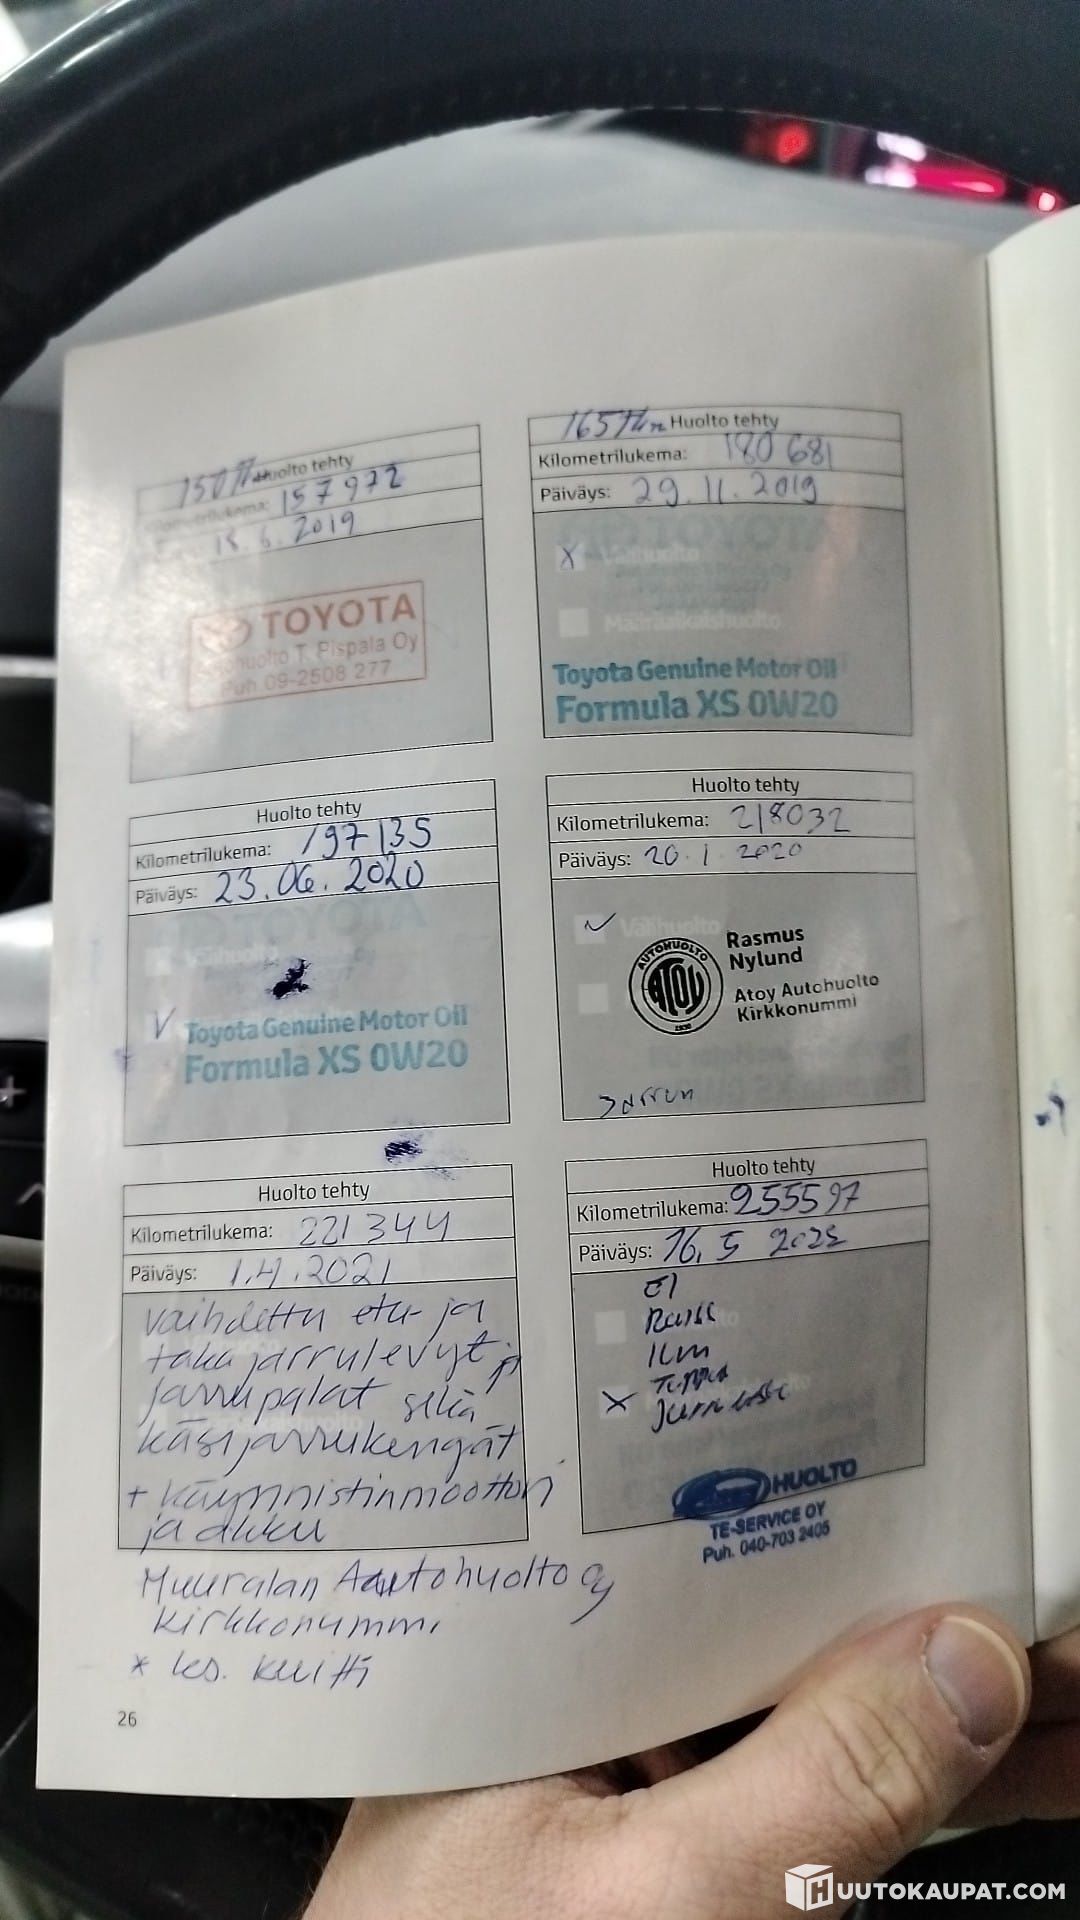 Huolto tehty
157972
18.6.2019
TOYOTA
T. Pispala Oy
Puh.09-2508 277
Huolto tehty
Kilometrilukema: 180 681
Päiväys: 29.11.2019
X Välihuolto
Määräaikaishuolto
Toyota Genuine Motor Oil
Formula XS 0W20
Huolto tehty
Kilometrilukema: 197135
Päiväys: 23.06.2020
Välihuolto
V Toyota Genuine Motor Oil
Formula XS 0W20
Huolto tehty
Kilometrilukema: 218032
Päiväys: 20.1 2020
Välihuolto
AUTOHUOLTO
ATOY
Rasmus
Nylund
Atoy Autohuolto
Kirkkonummi
Huolto tehty
Kilometrilukema: 221344
Päiväys: 1.4.2021
vaihdettu etu- ja
taka jarrulevyt ja
jarrupalat sekä
käsijarrukengät
+ käynnistinmoottori
ja akku
Muuralan Autohuolto Oy
Kirkkonummi
* ks. kuitti
Huolto tehty
Kilometrilukema: 255597
Päiväys: 16.5 2025
X
HUOLTO
TE-SERVICE OY
Puh. 040-703 2405
26
HUUTOKAUPAT.COM